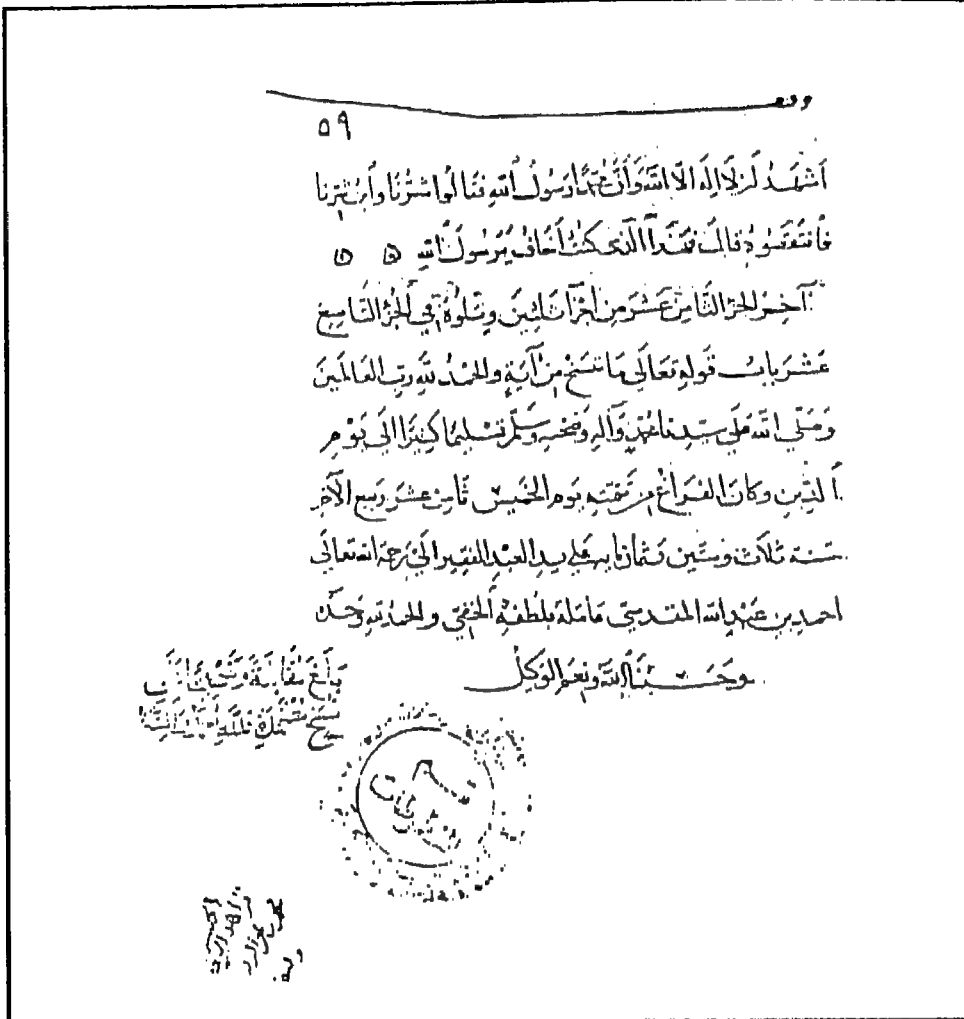 وقف
٥٩
أشهد أن لا إله إلا الله وأن محمدا رسول الله فقالوا شرنا وابن شرنا
فانتقصوه قال فهذا الذي كنت أخاف يرسول الله ۞ ۞
آخر الجزء الثامن عشر من أجزاء ثلثين ويتلوه في الجزء التاسع
عشر باب قوله تعالى ما ننسخ من آية والحمد لله رب العالمين
وصلى الله على سيدنا محمد وآله وصحبه وسلم تسليما كثيرا إلى يوم
الدين وكان الفراغ من تتمته يوم الخميس ثامن عشر ربيع الآخر
سنة ثلاث وستين وثمانمايه على يد العبد الفقير إلى رحمة الله تعالى
احمد بن عبد الله المقدسي عامله بلطفه الخفي والحمد لله وحده
وحسبنا الله ونعم الوكيل
بلغ مقابلة